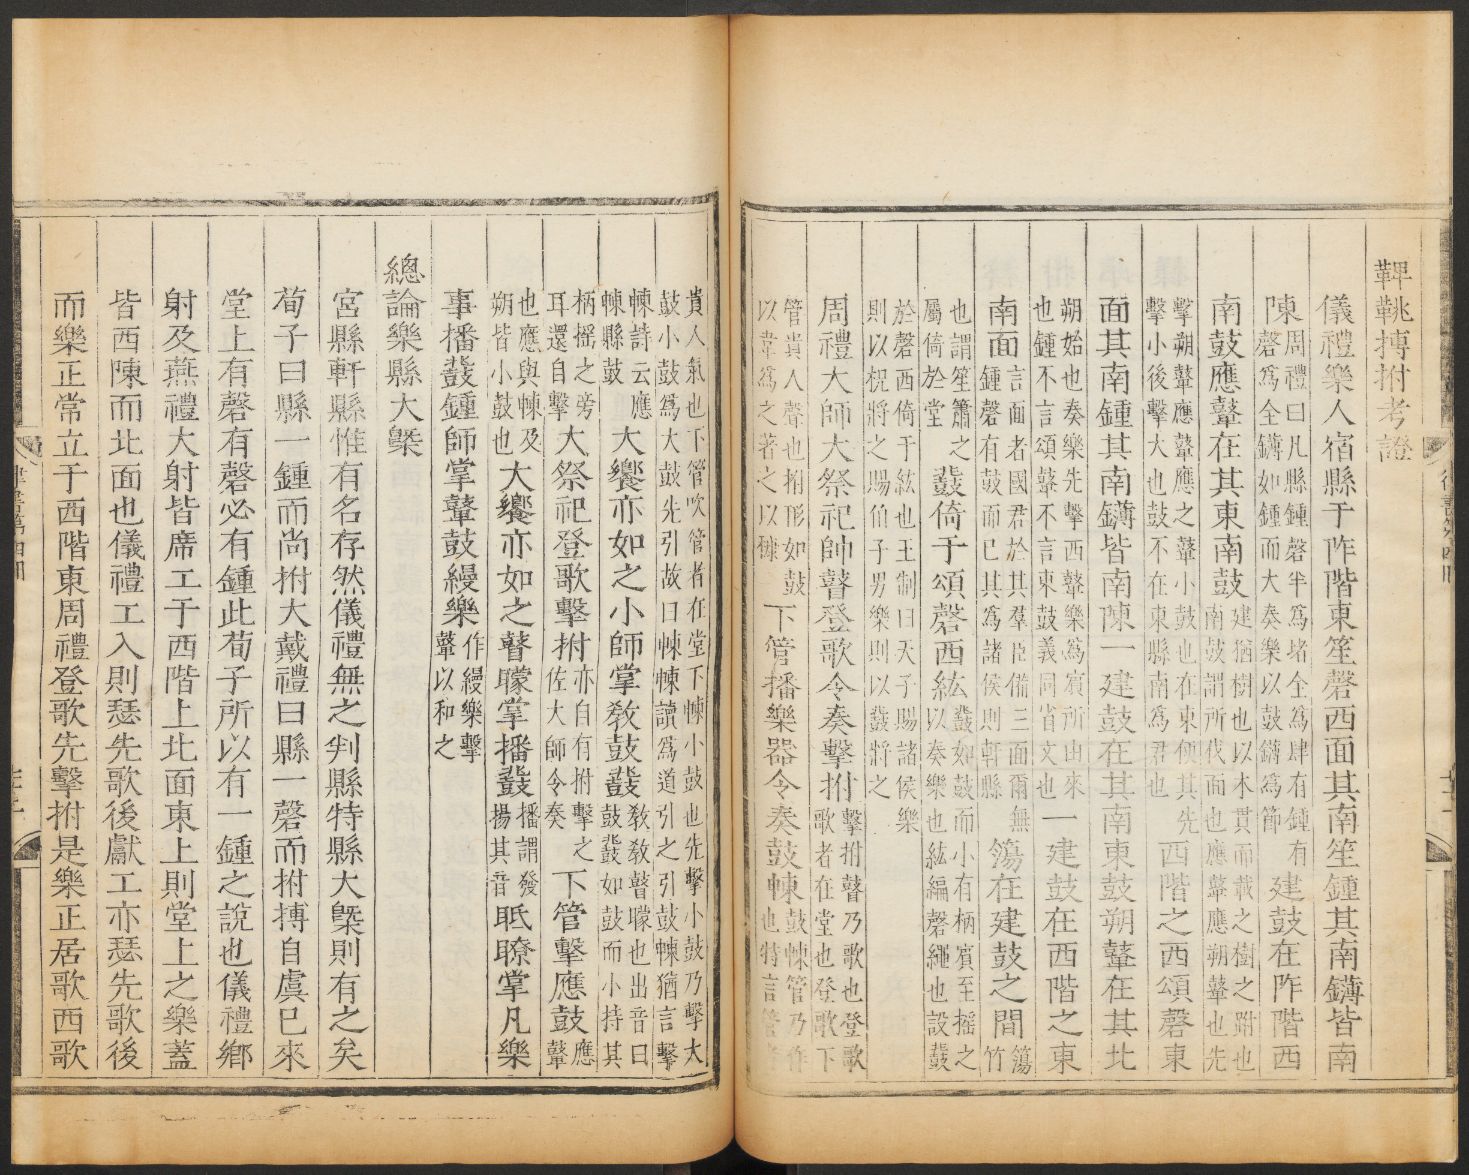 鞞鞉搏拊考證
儀禮樂人宿縣于阼階東笙磬西面其南笙鍾其南鑮皆南
陳周禮曰凡縣鍾磬半爲堵全爲肆有鍾有
磬爲全鑮如鍾而大奏樂以鼓鑮爲節建鼓在阼階西
南鼓應鼙在其東南鼓建猶樹也以木貫而載之樹之跗也
南鼓謂所伐面也應鼙應朔鼙也先
擊朔鼙應鼙應之鼙小鼓也在東便其先
擊小後擊大也鼓不在東縣南爲君也西階之西頌磬東
面其南鍾其南鑮皆南陳一建鼓在其南東鼓朔鼙在其北
朔始也奏樂先擊西鼙樂爲賓所由來
也鍾不言頌鼙不言東鼓義同省文也一建鼓在西階之東
南面言面者國君於其羣臣備三面爾無
鍾磬有鼓而已其爲諸侯則軒縣簜在建鼓之間簜
竹
也謂笙簫之
屬倚於堂鼗倚于頌磬西紘鼗如鼓而小有柄賓至搖之
以奏樂也紘編磬繩也設鼗
於磬西倚于紘也王制曰天子賜諸侯樂
則以柷將之賜伯子男樂則以鼗將之
周禮大師大祭祀帥瞽登歌令奏擊拊擊拊瞽乃歌也登歌
歌者在堂也登歌下
管貴人聲也拊形如鼓
以韋爲之著之以穅下管播樂器令奏鼓朄鼓朄管乃作
也特言管者
貴人氣也下管吹管者在堂下朄小鼓也先擊小鼓乃擊大
鼓小鼓爲大鼓先引故曰朄朄讀爲道引之引鼓朄猶言擊
朄詩云應
朄縣鼓大饗亦如之小師掌敎鼓鼗敎敎瞽矇也出音曰
鼓鼗如鼓而小持其
柄搖之旁
耳還自擊大祭祀登歌擊拊亦自有拊擊之
佐大師令奏下管擊應鼓應
鼙
也應與朄及
朔皆小鼓也大饗亦如之瞽矇掌播鼗播謂發
揚其音眡瞭掌凡樂
事播鼗鍾師掌鼙鼓縵樂作縵樂擊
鼙以和之
總論樂縣大槩
宮縣軒縣惟有名存然儀禮無之判縣特縣大槩則有之矣
荀子曰縣一鍾而尚拊大戴禮曰縣一磬而拊搏自虞已來
堂上有磬有磬必有鍾此荀子所以有一鍾之說也儀禮鄉
射及燕禮大射皆席工于西階上北面東上則堂上之樂蓋
皆西陳而北面也儀禮工入則瑟先歌後獻工亦瑟先歌後
而樂正常立于西階東周禮登歌先擊拊是樂正居歌西歌